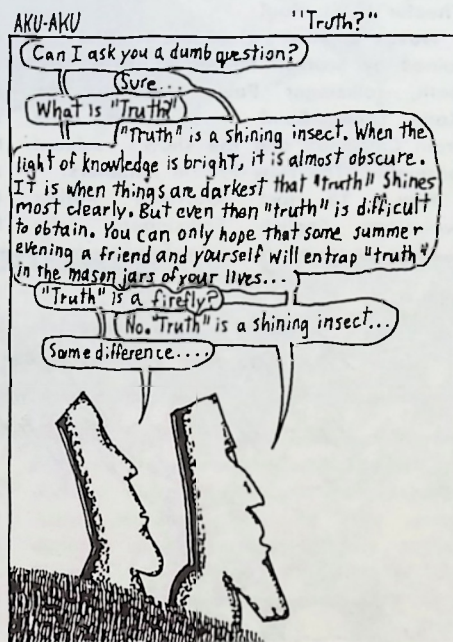 AKU-AKU
"Truth?"
Can I ask you a dumb question?
Sure...
What is "Truth?"
"Truth" is a shining insect. When the
light of knowledge is bright, it is almost obscure.
It is when things are darkest that "truth" shines
most clearly. But even then "truth" is difficult
to obtain. You can only hope that some summer
evening a friend and yourself will entrap "truth"
in the mason jars of your lives...
"Truth" is a firefly?
No. "Truth" is a shining insect...
Same difference....